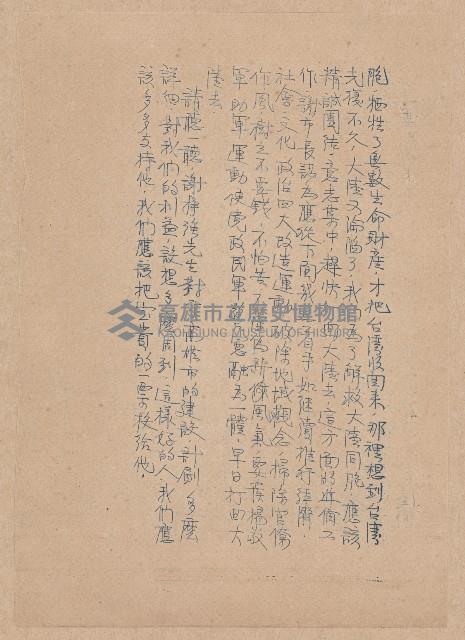 胞,犧牲了無數生命財產,才把台灣收回來,那裡想到台灣
光復不久,大陸又淪陷了,我們為了解救大陸同胞,應該
精誠團結,意志集中,趕快打回大陸去,這方面的近衛工
作,謝市長認為應從下面幾項着手,如繼續推行經濟,
社會,文化,政治四大改造運動,破除地域觀念,掃除官僚
作風,樹立不要錢,不怕苦,不
軍助軍運動,使民政民軍 融為一體,早日打回大
陸去。
請聽一聽謝掙強先生對 市的建設計劃,多麼
詳細,對我們的利益,設想多麼周到,這樣好的人,我們應
該多多支持他,我們應該把寶貴的一票投給他。
高雄市立歷史博物館
KAOHSIUNG MUSEUM OF HISTORY